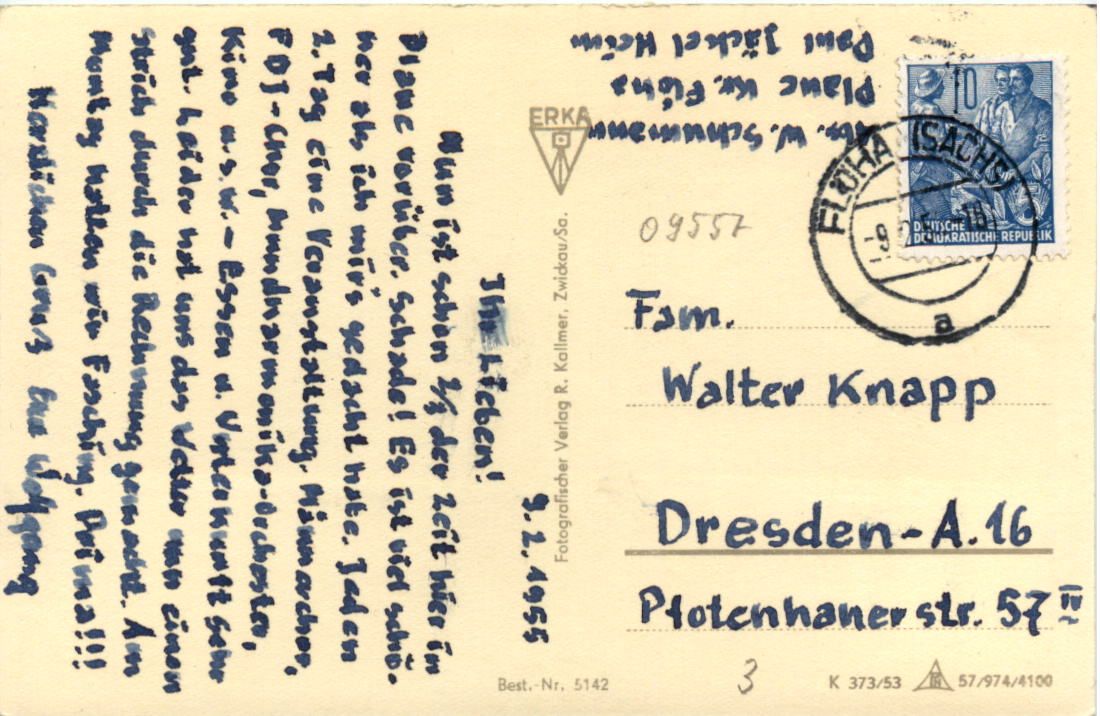 9.2.1955
Ihr Lieben!
Nun ist schon 2/3 der Zeit hier in
Plaue vorüber. Schade! Es ist viel schö-
ner als ich mir's gedacht habe. Jeden
2. Tag eine Veranstaltung. Männerchor,
FDJ-Chor, Mundharmonika-Orchester,
Kino u.s.w. – Essen u. Unterkunft sehr
gut. Leider hat uns das Wetter nun einen
Strich durch die Rechnung gemacht. Am
Montag hatten wir Fasching. Prima!!!
Herzlichen Gruß Eur Wolfgang
Abs. W. Schumann
Plaue Kr. Flöha
Paul Jäckel Heim
ERKA
Fotografischer Verlag R. Kallmer, Zwickau/Sa.
10
DEUTSCHE
DEMOKRATISCHE REPUBLIK
FLÖHA (SACHS)
a
09557
Fam.
Walter Knapp
Dresden-A. 16
Pfotenhauerstr. 57 IV
Best.-Nr. 5142
3
K 373/53
57/974/4100